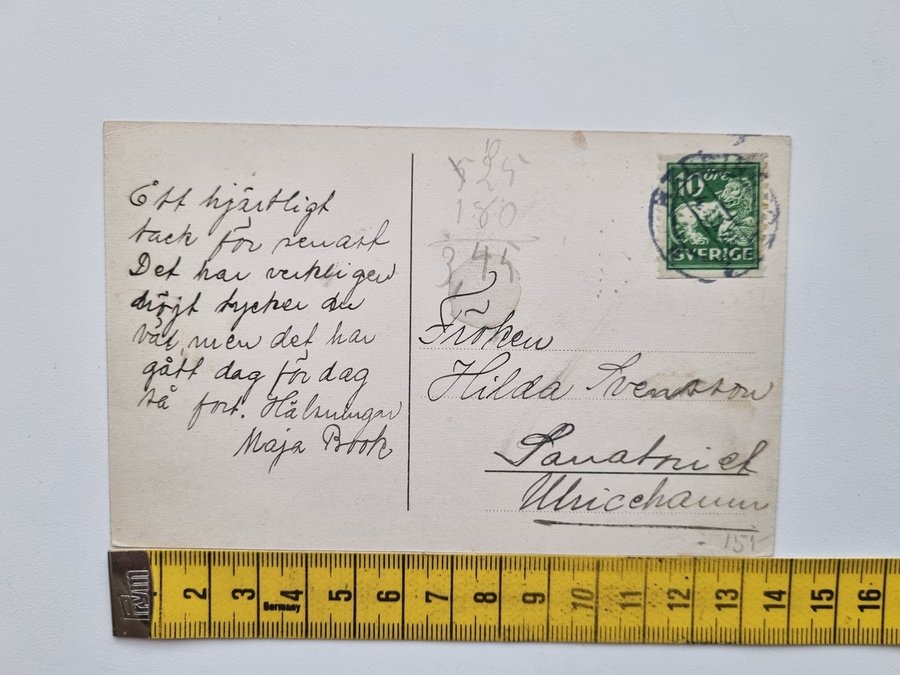 Ett hjärtligt
tack för senast
Det har verkligen
dröjt tycker du
väl, men det har
gått dag för dag
så fort. Hälsningar
Maja Book
525
180
345
10 ÖRE
SVERIGE
Fröken
Hilda Svensson
Sanatoriet
Ulricehamn
151
2 3 4 5 6 7 8 9 10 11 12 13 14 15 16
Germany